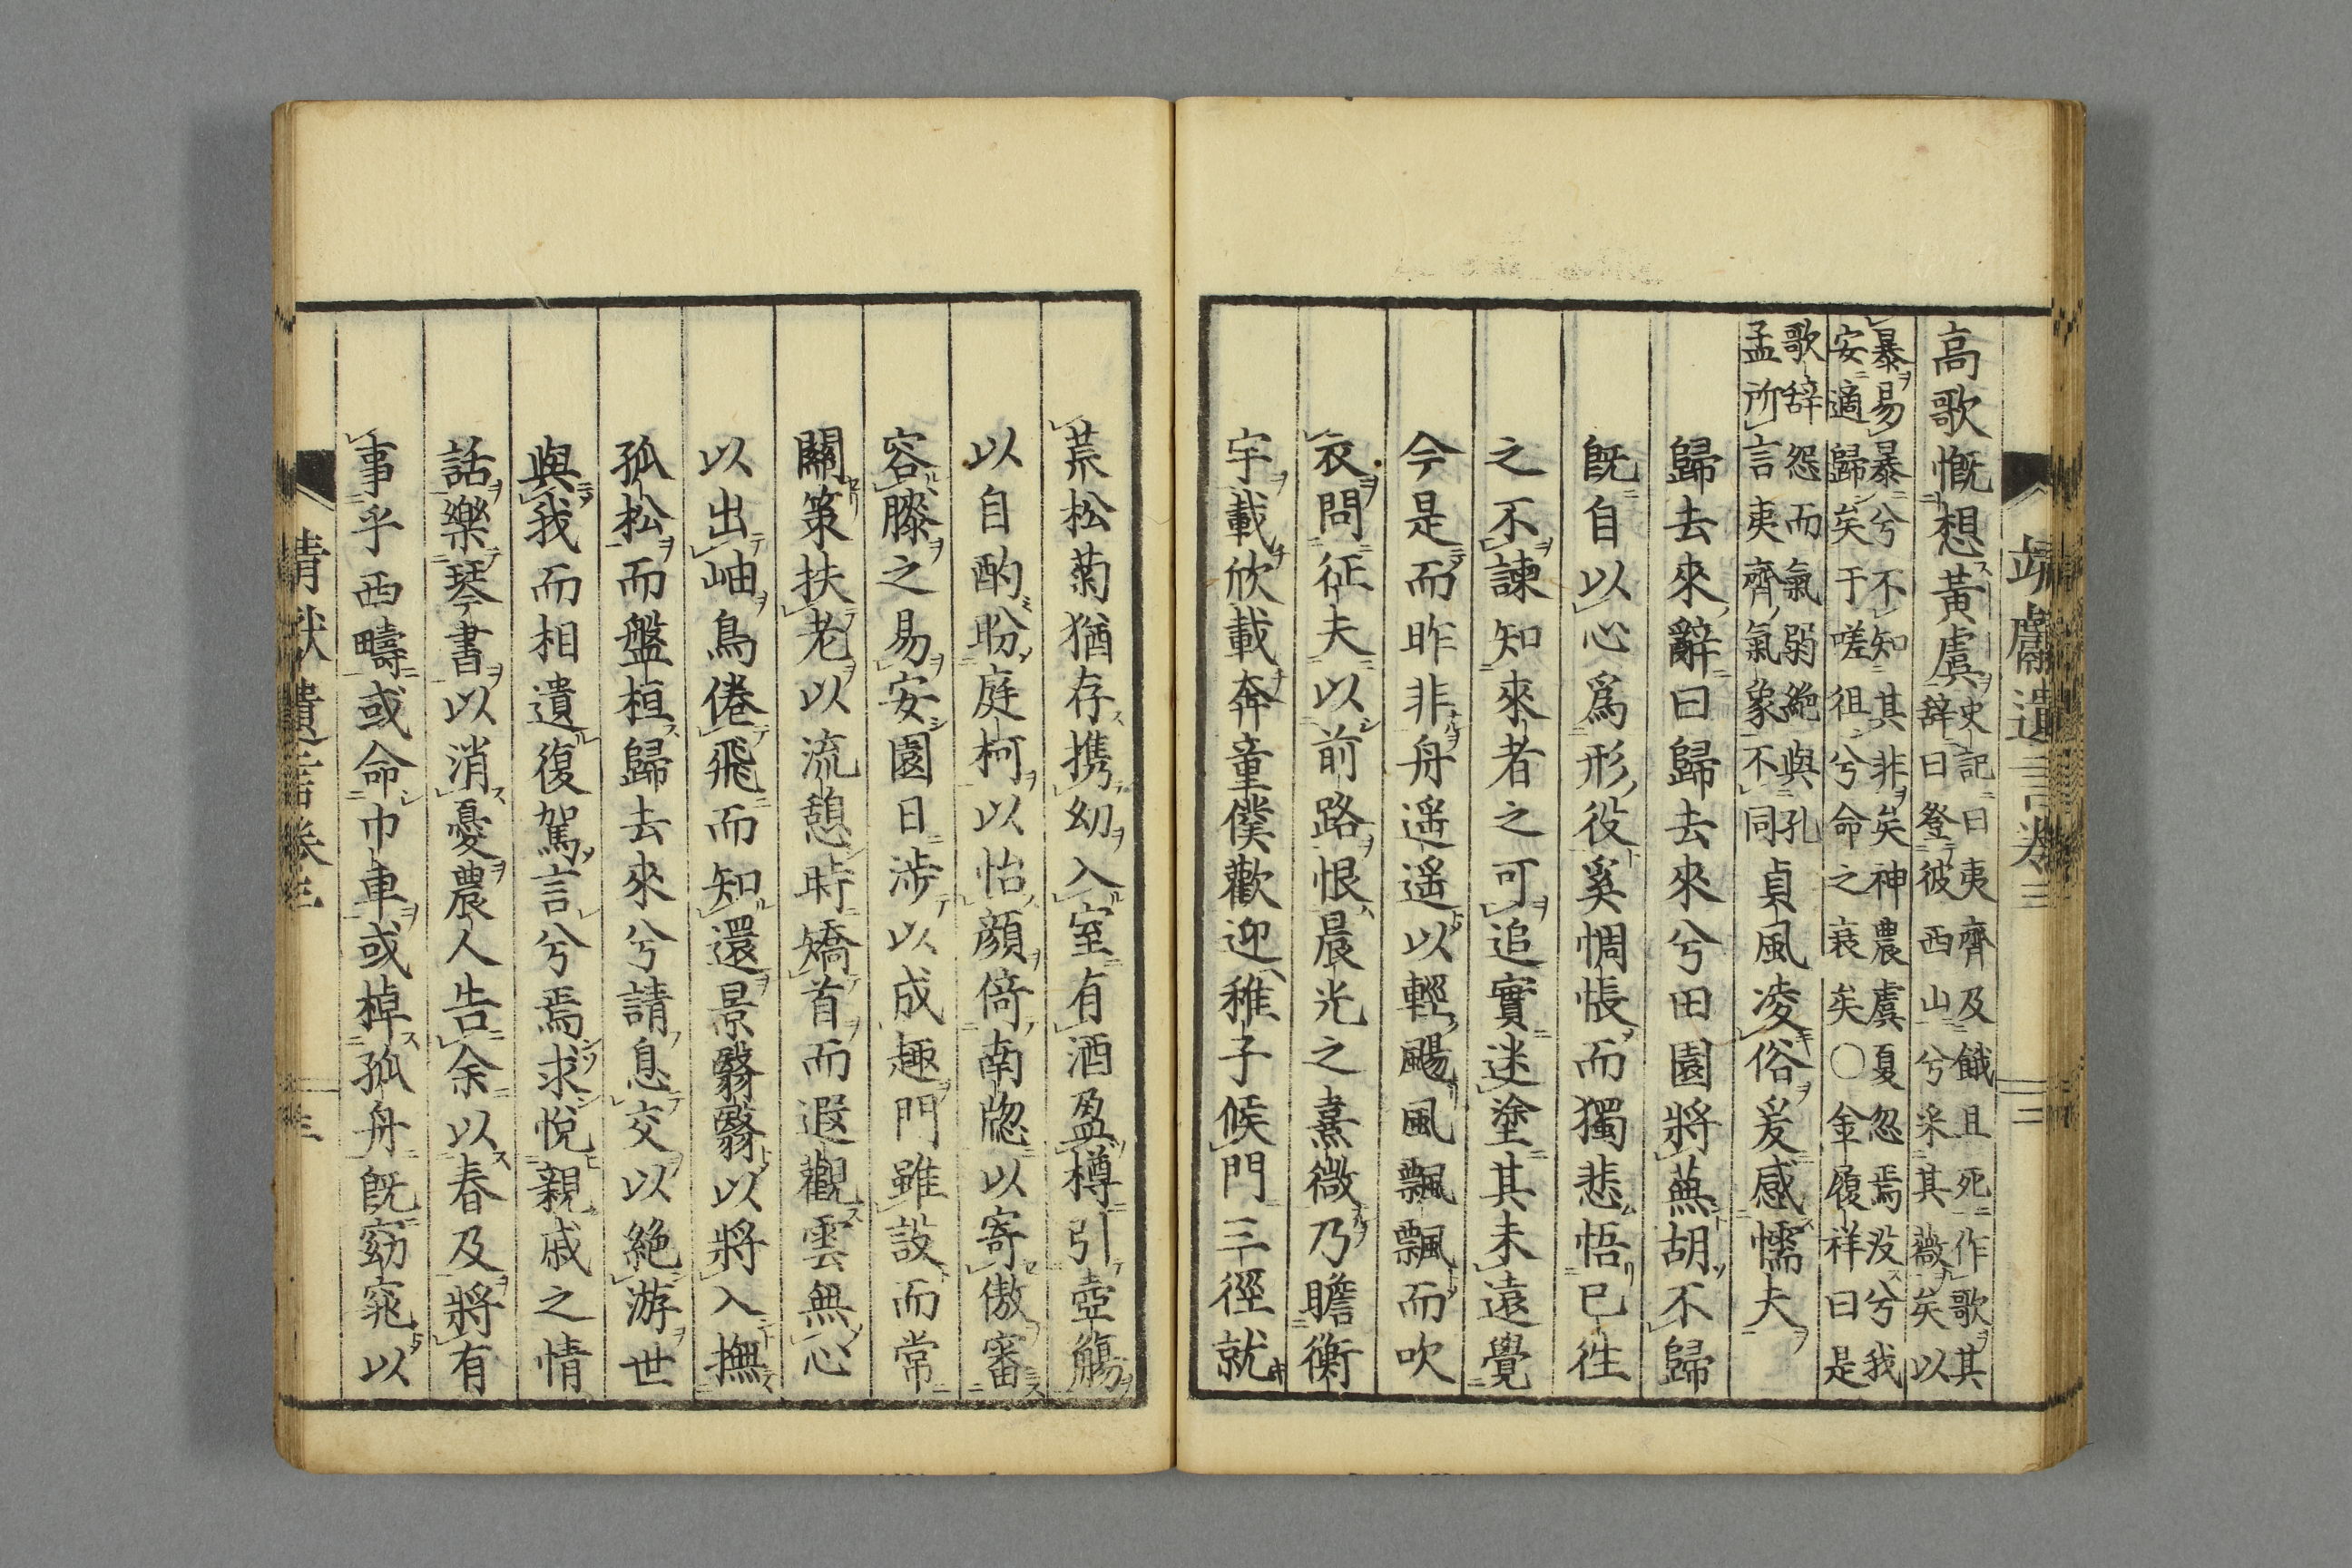 靖獻遺言卷三
二
高歌慨想黃虞史記曰夷齊及餓且死作歌其
辭曰登彼西山兮采其薇矣以
暴易暴兮不知其非矣神農虞夏忽焉没兮我
安適歸矣于嗟徂兮命之衰矣○金履祥曰是
歌辭怨而氣弱絶與孔
孟所言夷齊氣象不同貞風凌俗爰感懦夫
歸去來辭曰歸去來兮田園將蕪胡不歸
旣自以心爲形役奚惆悵而獨悲悟已徃
之不諫知來者之可追實迷塗其未遠覺
今是而昨非舟遥遥以輕颺風飄飄而吹
衣問征夫以前路恨晨光之熹微乃瞻衡
宇載欣載奔童僕歡迎稚子候門三徑就
荒松菊猶存携幼入室有酒盈樽引壺觴
以自酌眄庭柯以怡顏倚南牕以寄傲審
容膝之易安園日涉以成趣門雖設而常
關策扶老以流憩時矯首而遐觀雲無心
以出岫鳥倦飛而知還景翳翳以將入撫
孤松而盤桓歸去來兮請息交以絶游世
與我而相遺復駕言兮焉求悅親戚之情
話樂琴書以消憂農人告余以春及將有
事乎西疇或命巾車或棹孤舟旣窈窕以
靖獻遺言卷三
三